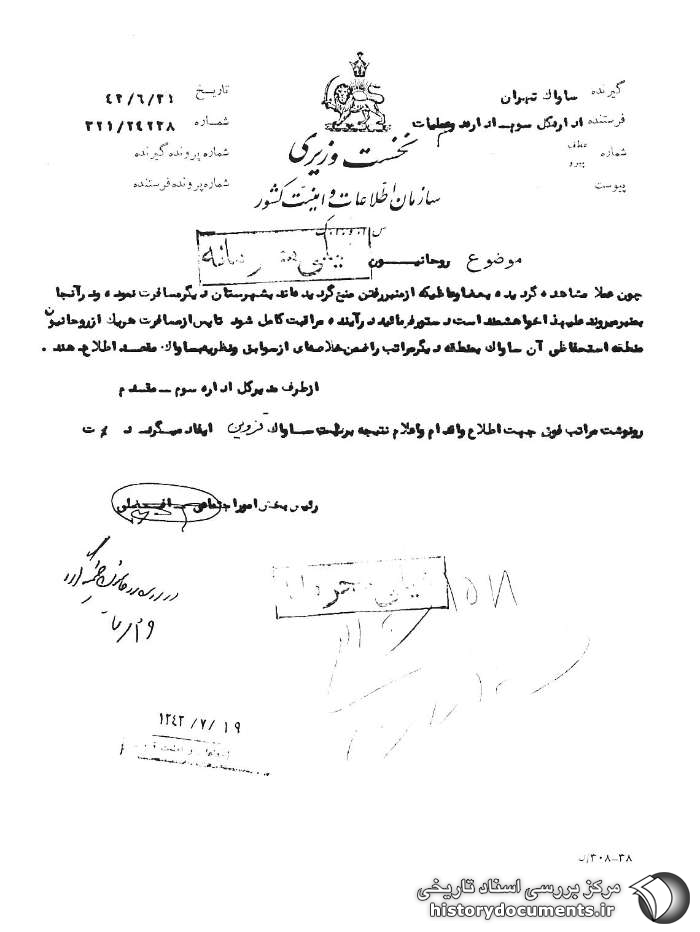 گیرنده ساواك تهران
فرستنده اداره کل سوم ـ اداره وعملیات
شماره عطف پیرو
پیوست
نخست وزیری
سازمان اطلاعات و امنیت کشور
تاریخ ۴۳/۶/۳۱
شماره ۳۲۱/۲۴۲۳۸
شماره پرونده گیرنده
شماره پرونده فرستنده
موضوع روحانیون
چون عملا مشاهده گردیده بعضا وعاظیکه از منبر رفتن منع گردیده‌اند بشهرستان دیگر مسافرت نموده ودر آنجا
بمنبر میروند علیهذا خواهشمند است دستور فرمائید در آینده مراقبت کامل شود تا پس از مسافرت هر یك از روحانیون
منطقه استحفاظی آن ساواك بمنطقه دیگر مراتب را ضمن خلاصه‌ای از سوابق ونظریه بساواك مقصد اطلاع دهند .
از طرف مدیر کل اداره سوم ـ مقدم
رونوشت مراتب فوق جهت اطلاع واقدام واعلام نتیجه بریاست ساواك قزوین ایفاد میگردد
رئیس بخش امور اجتماعی ـ افضلی
۱۳۴۳/۷/۱۹
۳۰۸-۳۸/ن
مرکز بررسی اسناد تاریخی
historydocuments.ir